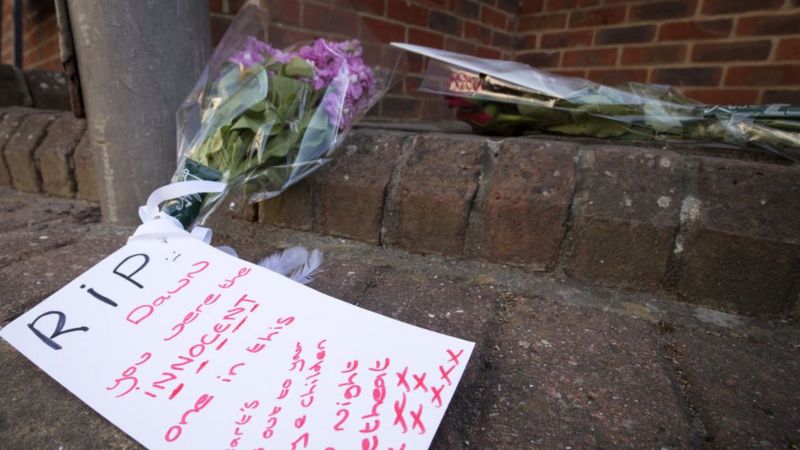 RIP :)
Dawn
you were the
INNOCENT
one in this
out to your
children
night
xx
xxx
xxx